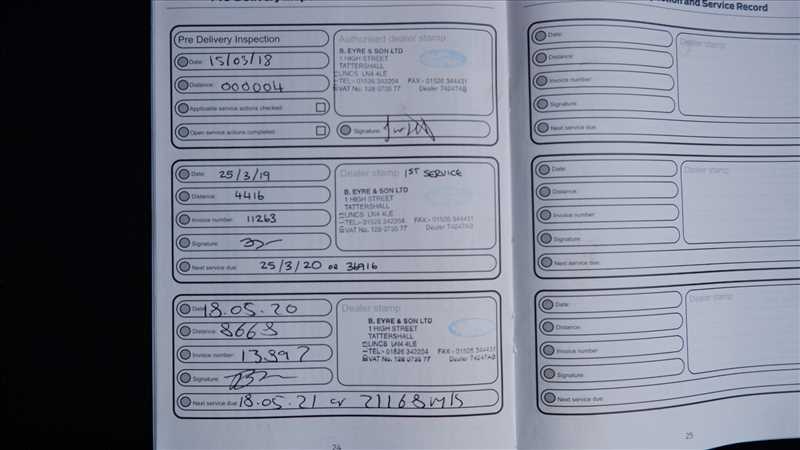 Pre Delivery Inspection
Date: 15/03/18
Distance: 000004
Applicable service actions checked:
Open service actions completed:
Authorised dealer stamp
B. EYRE & SON LTD
1 HIGH STREET
TATTERSHALL
LINCS LN4 4LE
TEL:- 01526 342204 FAX:- 01526 344431
VAT No. 128 0735 77 Dealer 74247AB
Signature:
Date: 25/3/19
Distance: 4416
Invoice number: 11263
Signature:
Next service due: 25/3/20 OR
Dealer stamp 1ST SERVICE
B. EYRE & SON LTD
1 HIGH STREET
TATTERSHALL
LINCS LN4 4LE
TEL:- 01526 342204 FAX:- 01526 344431
VAT No. 128 0735 77 Dealer 74247AB
Date: 18.05.20
Distance: 8668
Invoice number: 13397
Signature:
Next service due: 18.05.21 or 21168 mls
Dealer stamp
B. EYRE & SON LTD
1 HIGH STREET
TATTERSHALL
LINCS LN4 4LE
TEL:- 01526 342204 FAX:- 01526 344431
VAT No. 128 0735 77 Dealer 74247AB
24
and Service Record
Date:
Distance:
Invoice number:
Signature:
Next service due:
Dealer stamp
Date:
Distance:
Invoice number:
Signature:
Next service due:
Dealer stamp
Date:
Distance:
Invoice number:
Signature:
Next service due:
Dealer stamp
25